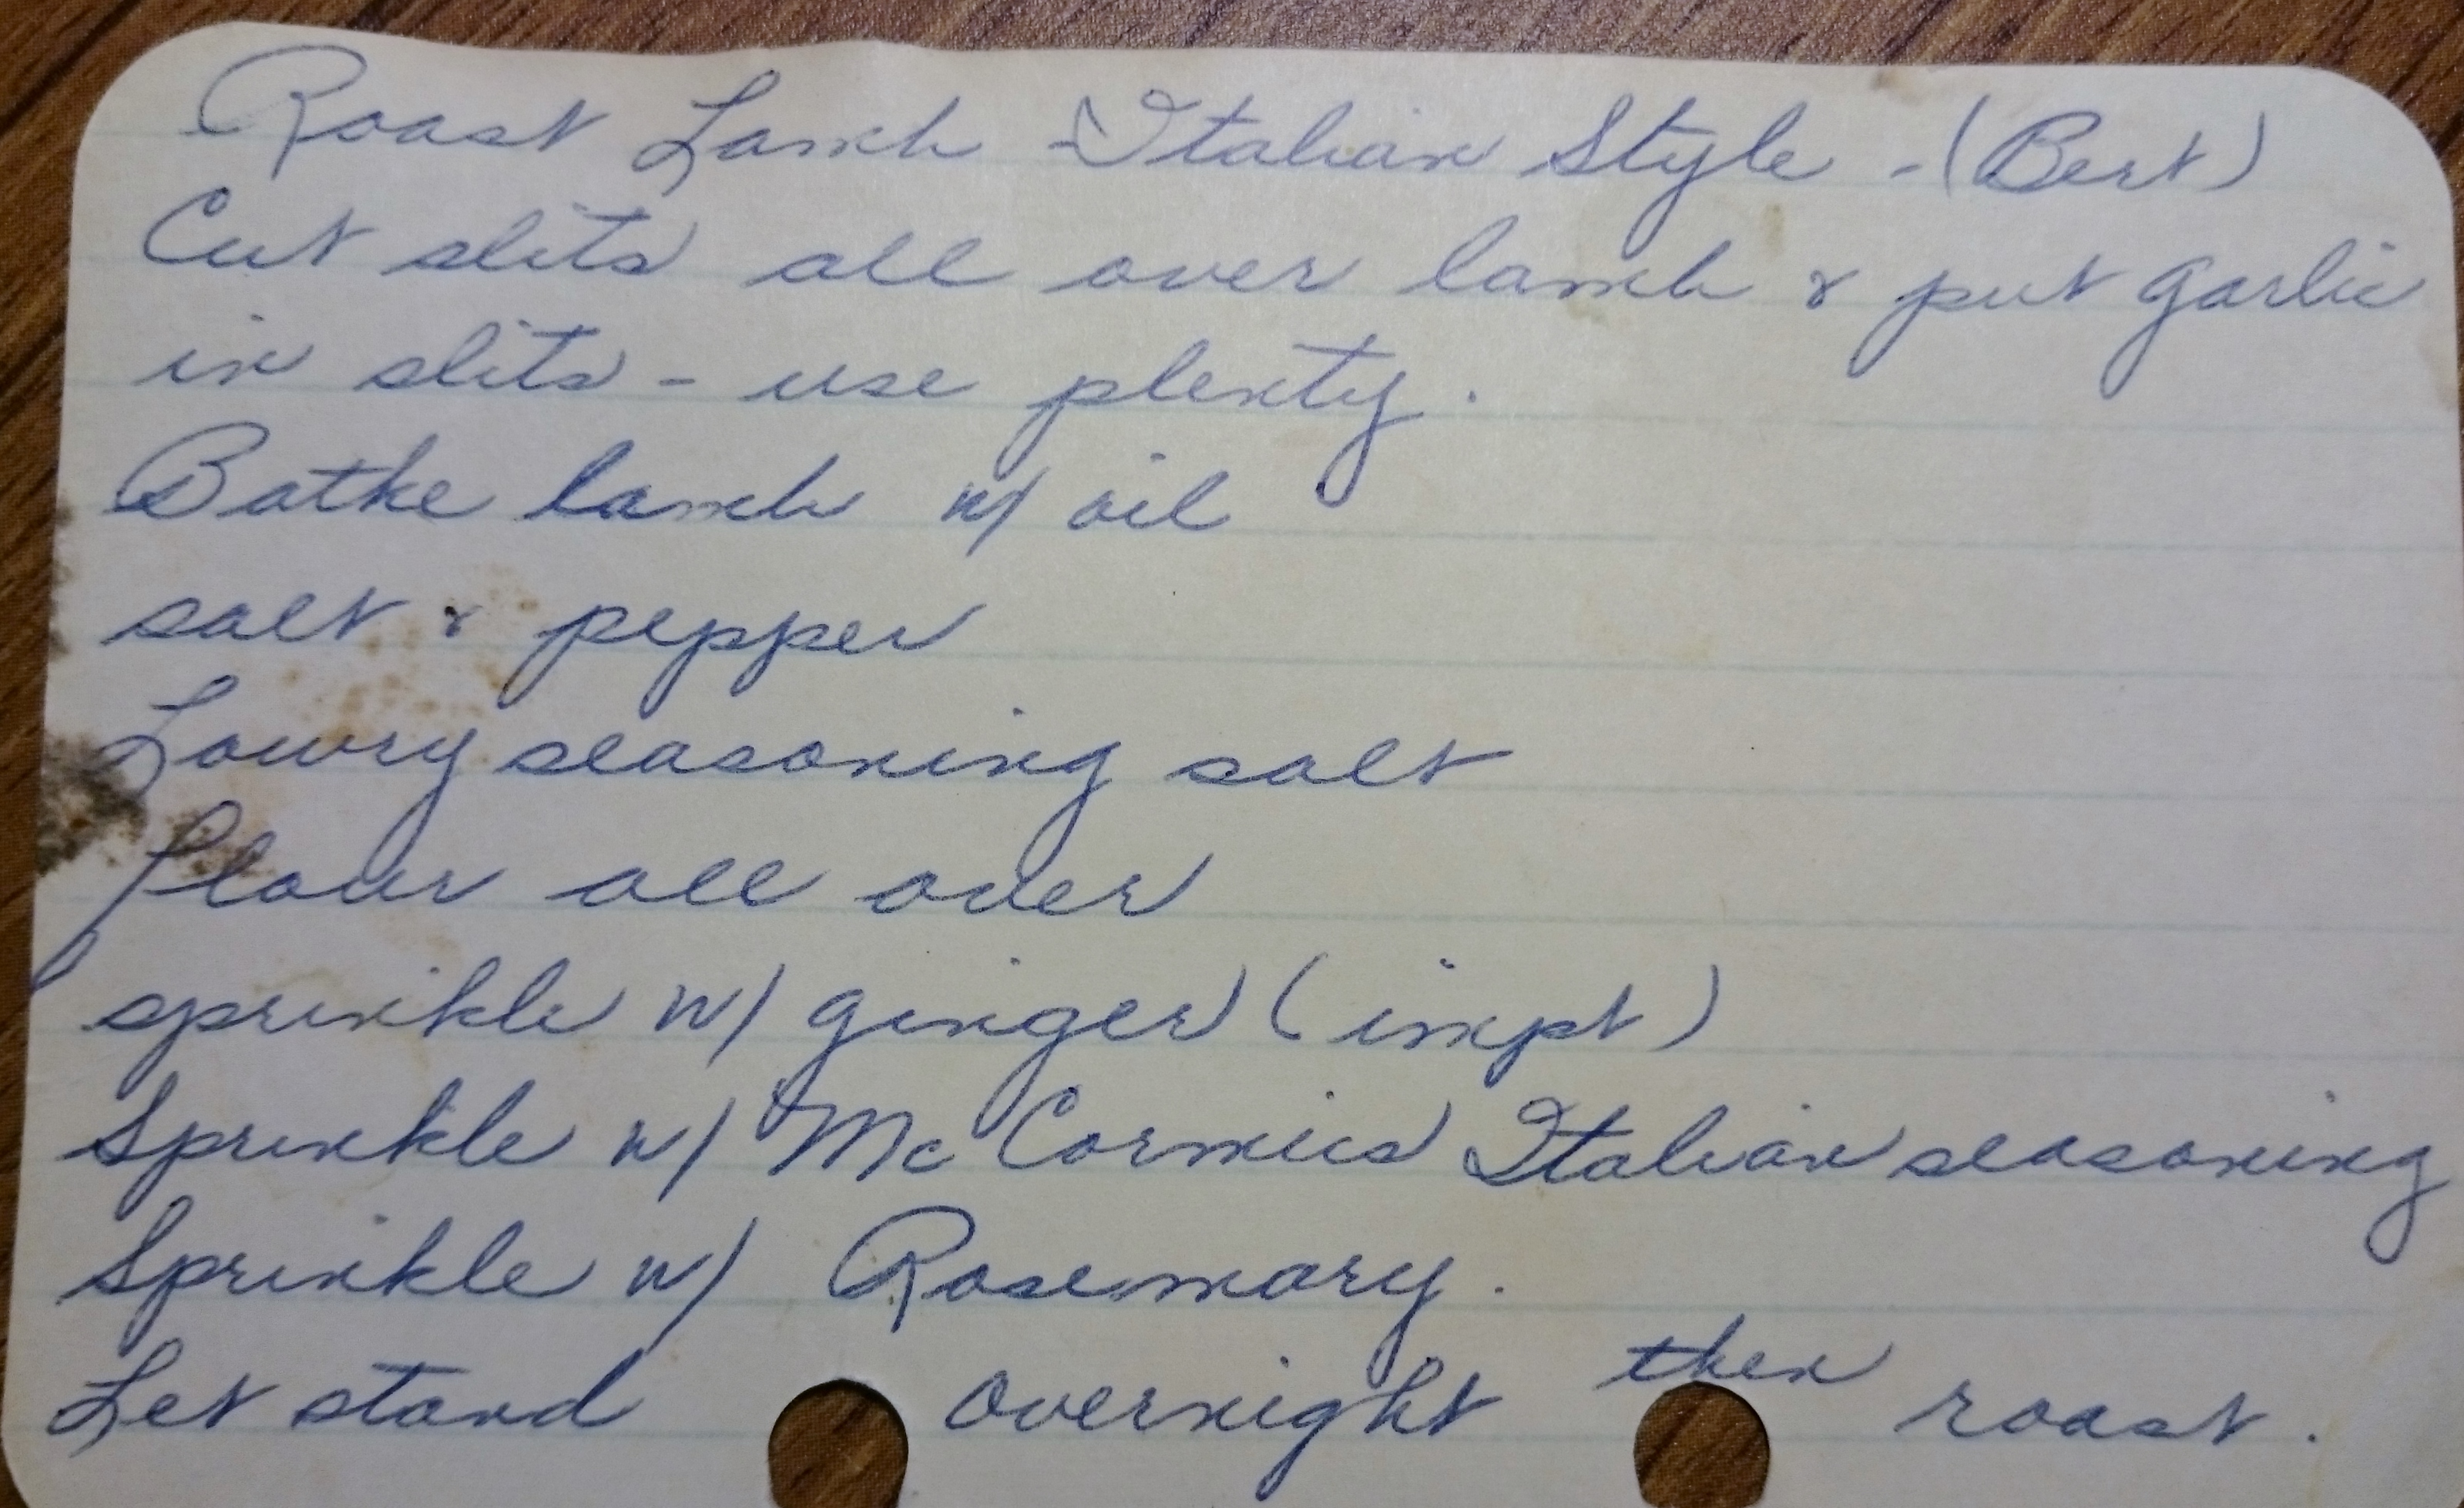 Roast Lamb - Italian Style - (Bert)
Cut slits all over lamb & put garlic
in slits - use plenty.
Bathe lamb w/ oil
salt & pepper
Lowry seasoning salt
flour all over
sprinkle w/ ginger (impt)
Sprinkle w/ McCormics Italian seasoning
Sprinkle w/ Rosemary.
Let stand overnight then roast.